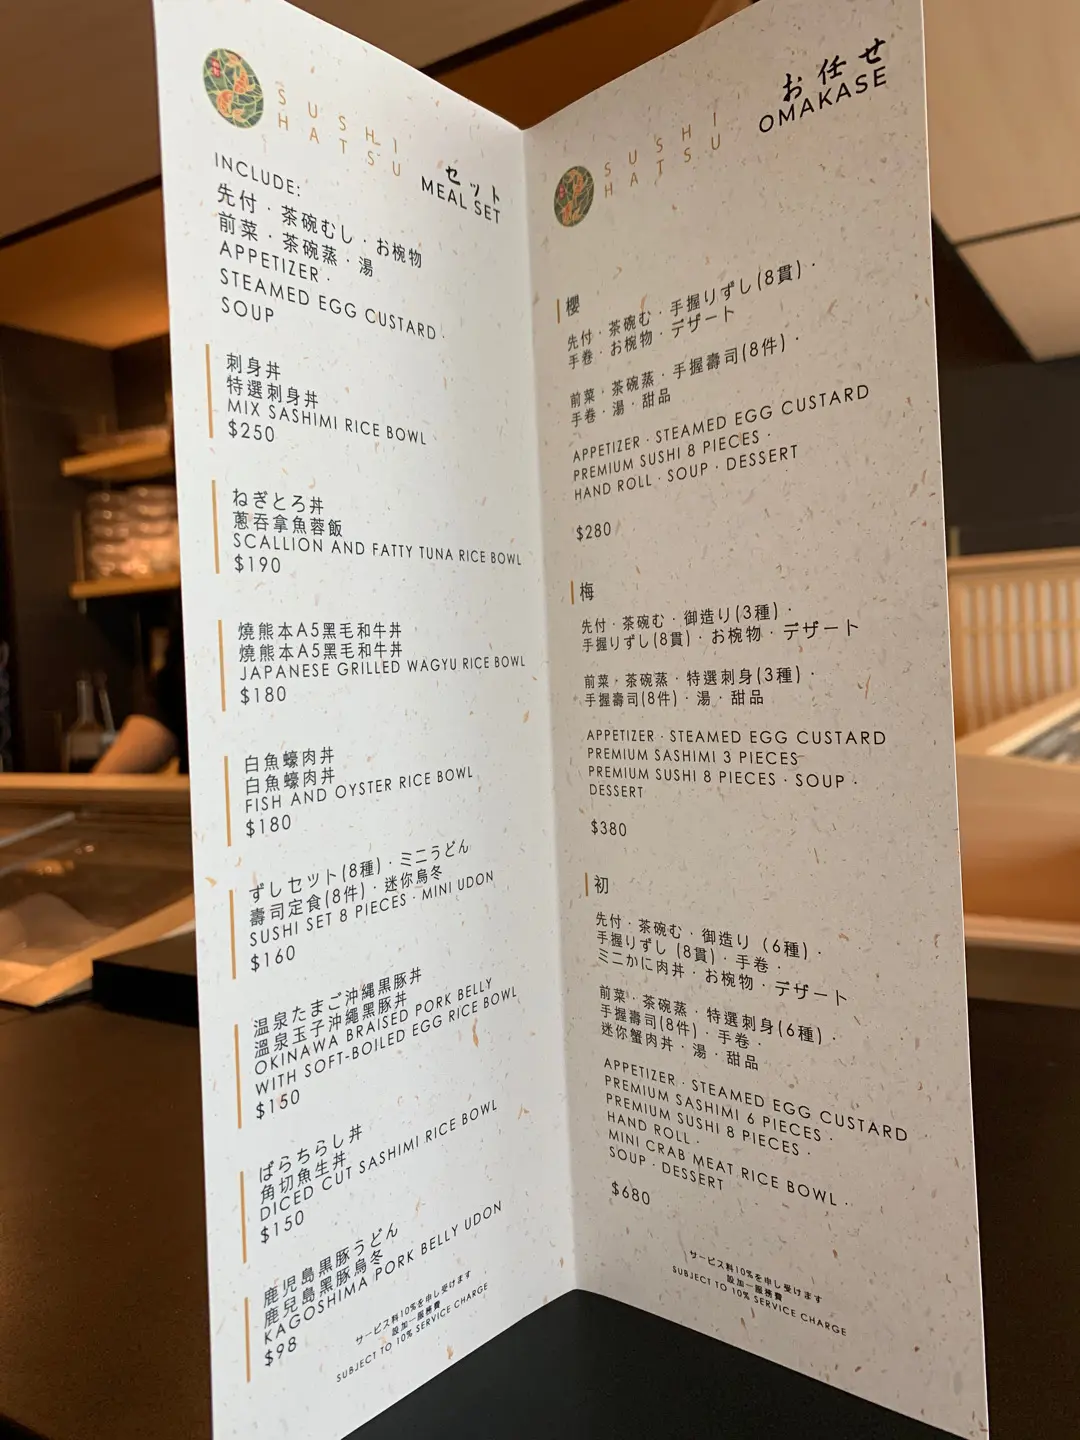 SUSHI
HATSU
セット
MEAL SET
INCLUDE:
先付・茶碗むし・お椀物
前菜・茶碗蒸・湯
APPETIZER・
STEAMED EGG CUSTARD・
SOUP
刺身丼
特選刺身丼
MIX SASHIMI RICE BOWL
$250
ねぎとろ丼
蔥吞拿魚蓉飯
SCALLION AND FATTY TUNA RICE BOWL
$190
燒熊本A5黑毛和牛丼
燒熊本A5黑毛和牛丼
JAPANESE GRILLED WAGYU RICE BOWL
$180
白魚蠔肉丼
白魚蠔肉丼
FISH AND OYSTER RICE BOWL
$180
ずしセット(8種)・ミニうどん
壽司定食(8件)・迷你烏冬
SUSHI SET 8 PIECES・MINI UDON
$160
温泉たまご沖縄黒豚丼
溫泉玉子沖繩黑豚丼
OKINAWA BRAISED PORK BELLY
WITH SOFT-BOILED EGG RICE BOWL
$150
ばらちらし丼
角切魚生丼
DICED CUT SASHIMI RICE BOWL
$150
鹿児島黒豚うどん
鹿兒島黑豚烏冬
KAGOSHIMA PORK BELLY UDON
$98
サービス料10%を申し受けます
設加一服務費
SUBJECT TO 10% SERVICE CHARGE
お任せ
OMAKASE
SUSHI
HATSU
櫻
先付・茶碗む・手握りずし(8貫)・
手巻・お椀物・デザート
前菜・茶碗蒸・手握壽司(8件)・
手卷・湯・甜品
APPETIZER・STEAMED EGG CUSTARD
PREMIUM SUSHI 8 PIECES・
HAND ROLL・SOUP・DESSERT
$280
梅
先付・茶碗む・御造り(3種)・
手握りずし(8貫)・お椀物・デザート
前菜・茶碗蒸・特選刺身(3種)・
手握壽司(8件)・湯・甜品
APPETIZER・STEAMED EGG CUSTARD
PREMIUM SASHIMI 3 PIECES
PREMIUM SUSHI 8 PIECES・SOUP・
DESSERT
$380
初
先付・茶碗む・御造り (6種)・
手握りずし (8貫)・手巻・
ミニかに肉丼・お椀物・デザート
前菜・茶碗蒸・特選刺身(6種)・
手握壽司(8件)・手卷・
迷你蟹肉丼・湯・甜品
APPETIZER・STEAMED EGG CUSTARD
PREMIUM SASHIMI 6 PIECES・
PREMIUM SUSHI 8 PIECES・
HAND ROLL・
MINI CRAB MEAT RICE BOWL・
SOUP・DESSERT
$680
サービス料10%を申し受けます
設加一服務費
SUBJECT TO 10% SERVICE CHARGE